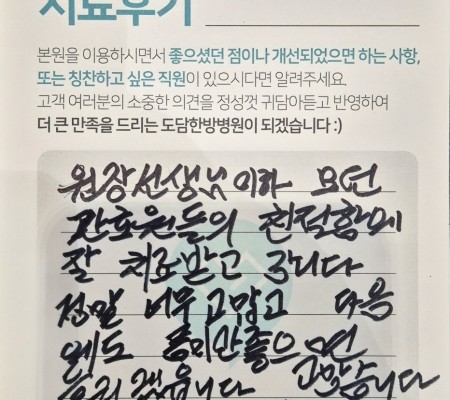 치료후기
본원을 이용하시면서 좋으셨던 점이나 개선되었으면 하는 사항,
또는 칭찬하고 싶은 직원이 있으시다면 알려주세요.
고객 여러분의 소중한 의견을 정성껏 귀담아듣고 반영하여
더 큰 만족을 드리는 도담한방병원이 되겠습니다 :)
원장선생님 이하 모던
간호원들의 친적함에
잘 치료받고 갑니다
전말 너무 고맙고 다음
에도 몸이 안좋으면
들리겠읍니다 고맙습니다